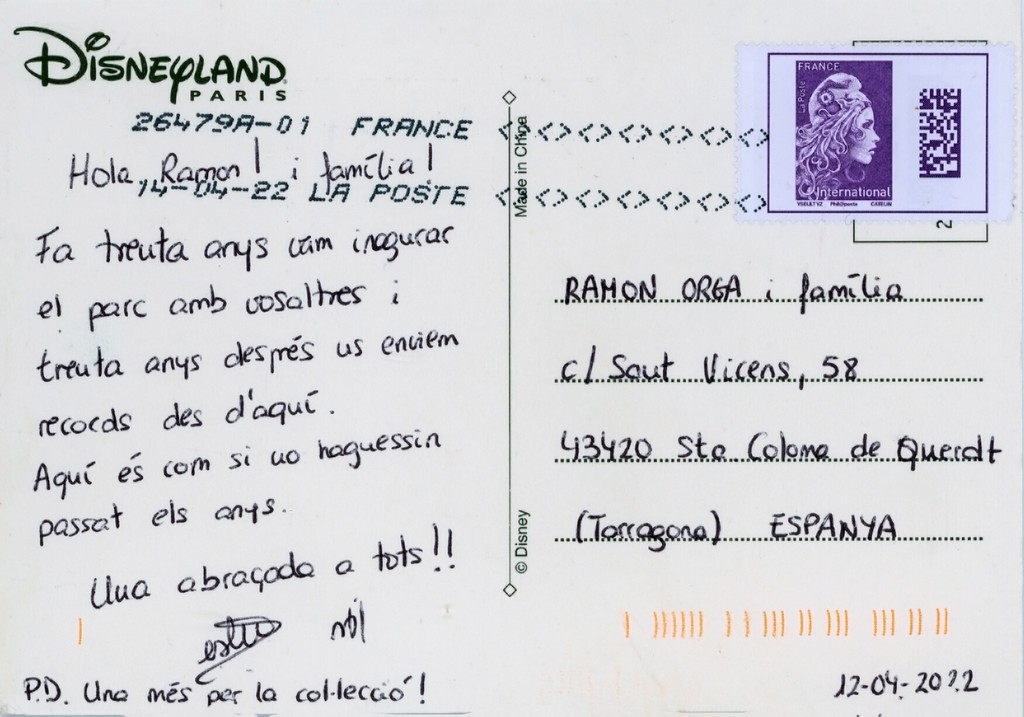 DISNEYLAND
PARIS
26479A-01 FRANCE
14-04-22 LA POSTE
Hola, Ramon! i família!
Fa trenta anys vam inagurar
el parc amb vosaltres i
trenta anys després us enviem
records des d'aquí.
Aquí és com si no haguessin
passat els anys.
Una abraçada a tots!!
P.D. Una més per la col·lecció!
Made in China
© Disney
FRANCE
La Poste
International
YSEULT YZ Phil@poste CATELIN
2
RAMON ORGA i família
c/ Sant Vicens, 58
43420 Sta Coloma de Queralt
(Tarragona) ESPANYA
12-04-2022